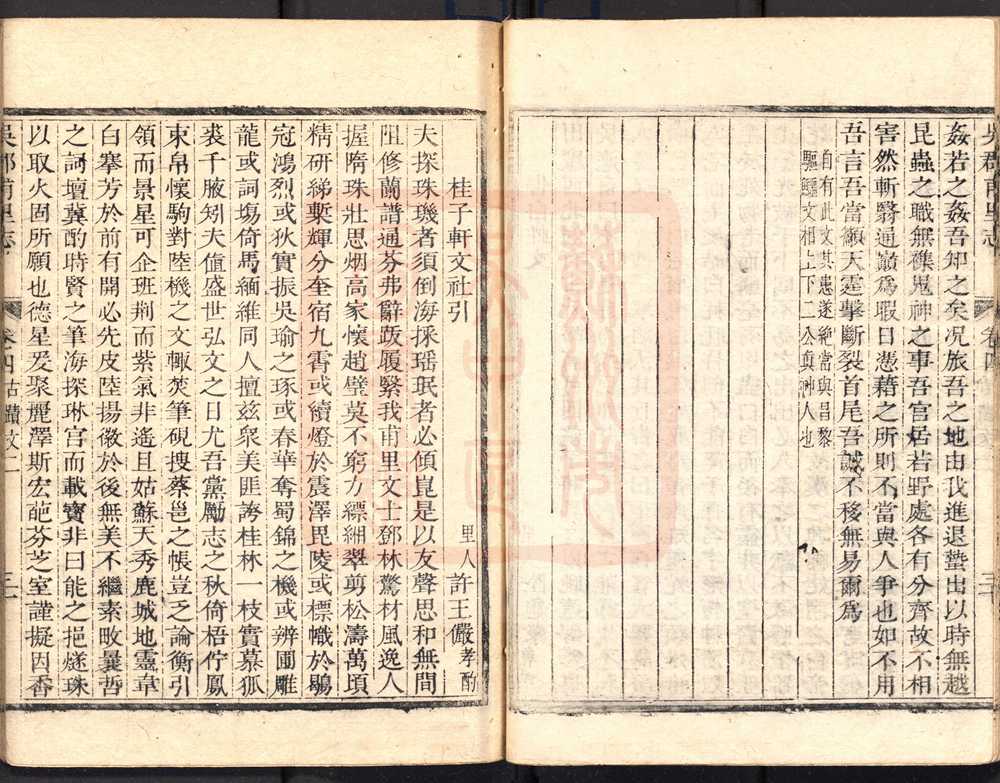 姦若之姦吾知之矣况旅吾之地由我進退蟄出以時無越
昆蟲之職無礫鬼神之事吾宮居若野處各有分齊故不相
害然斬翳通巔爲暇日憑藉之所則不當與人爭也如不用
吾言吾當籲天霆擊斷裂首尾吾誠不移無易爾爲
自有此文其患遂絶當與昌黎
驅鱷文相上下二公真神人也
吳郡甫里志
卷四
桂子軒文社引
里人許王儼孝酌
夫探珠璣者須倒海採瑶珉者必傾崑是以友聲思和無間
阻修蘭譜通芬弗辭䟦履緊我甫里文士鄧林驚材風逸人
握隋珠壯思烟高家懷趙璧莫不窮力縹緗翠剪松濤萬頃
精研綈槧輝分奎宿九霄或續燈於震澤毘陵或標幟於鶚
冠鴻烈或狄實振吳瑜之琢或春華奪蜀錦之機或辨圃雕
龍或詞塲倚馬緬維同人擅兹衆美匪誇桂林一枝實慕狐
裘千腋矧夫値盛世弘文之日尤吾黨勵志之秋倚梧佇鳳
束帛懷駒對陸機之文輙焚筆硯搜蔡邕之帳豈乏論衡引
領而景星可企班荆而紫氣非遙且姑蘇天秀鹿城地靈韋
白搴芳於前有開必先皮陸揚徽於後無美不繼素畋曩哲
之詞壇冀酌時賢之筆海探琳宫而載寶非曰能之挹燧珠
以取火固所願也德星爰聚麗澤斯宏葩芬芝室謹擬因香
吳郡甫里志
卷四